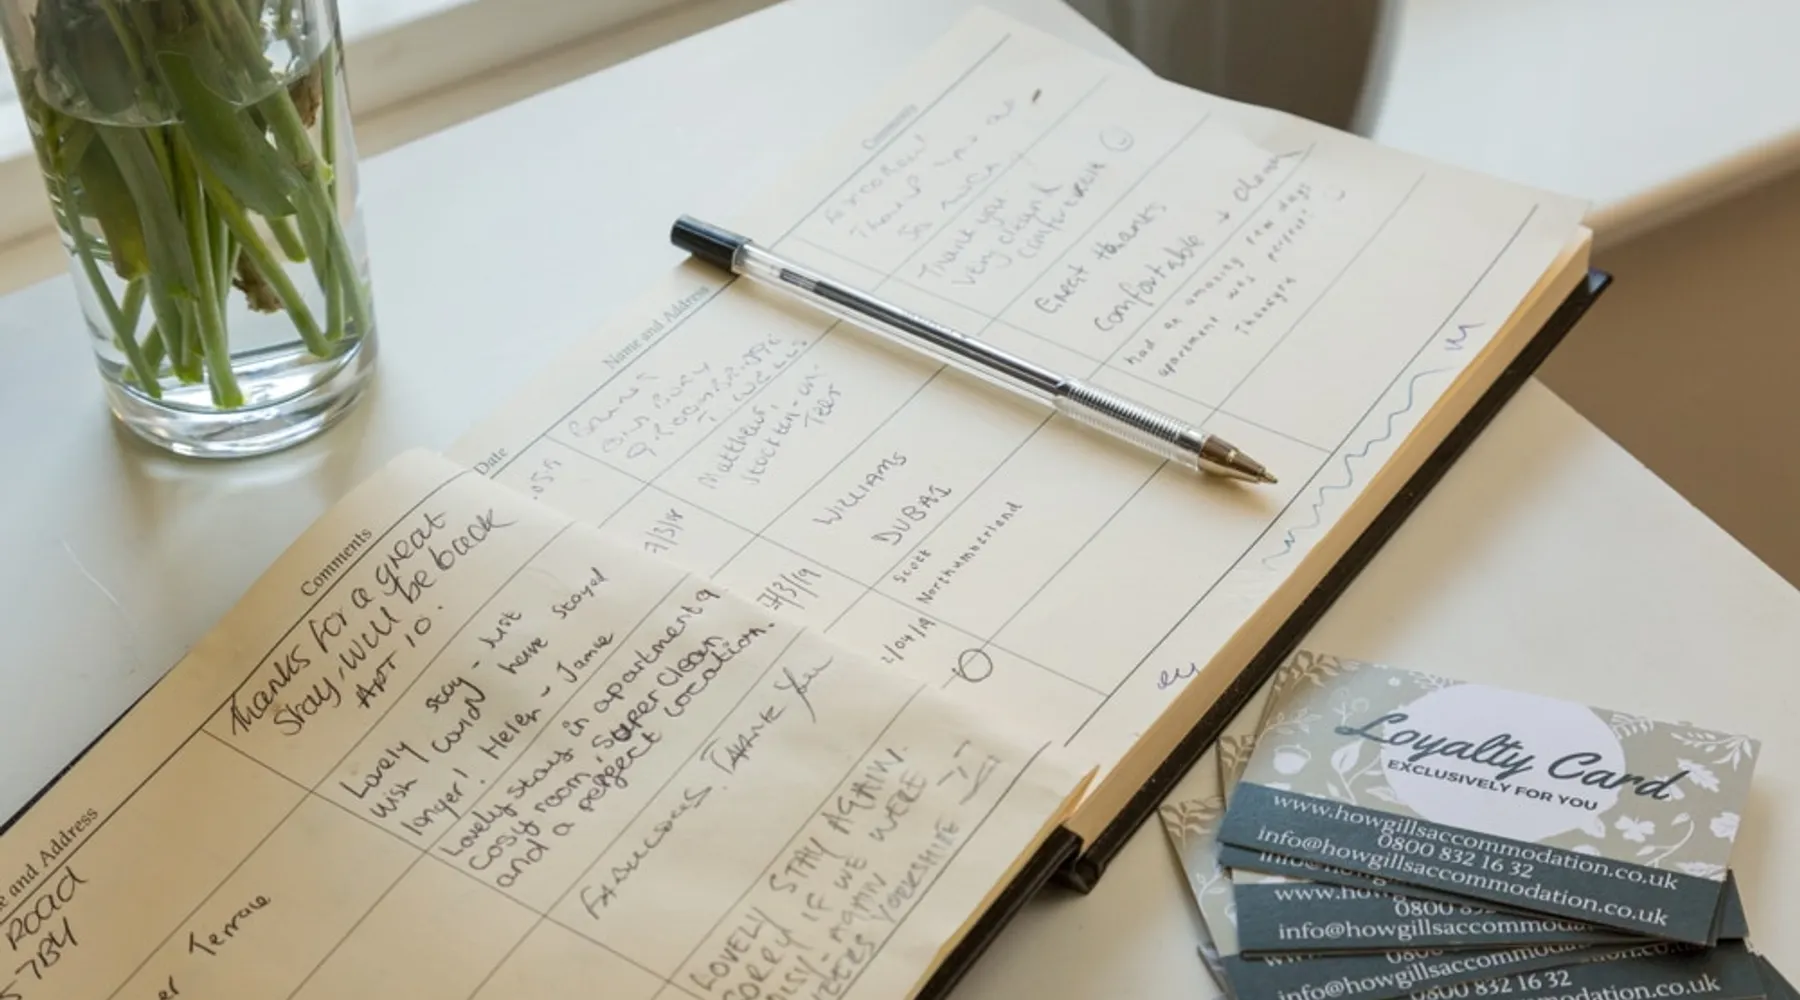 Comments
Thanks for a great
Stay, Will be back
Apt 10.
Lovely stay - Just
wish I could have stayed
longer! Helen - Jamie
Lovely stay in apartment 9
cosy room, super clean
and a perfect location.
FABULOUS. Thank You
LOVELY STAY AGAIN.
SORRY IF WE WERE
NOISY - MOANIN
YORKSHIRE
and Address
ROAD
7BY
Terrace
Date
Name and Address
Comments
Thank you
so much
7/3/19
Matthew,
Stockton-on-
Tees
Thank you
very clean &
comfortable
27/3/19
WILLIAMS
DUBAI
Great thanks
Comfortable + clean
2/04/19
Scott
Northumberland
had an amazing few days
apartment was perfect!
Thankyou
Loyalty Card
EXCLUSIVELY FOR YOU
www.howgillsaccommodation.co.uk
0800 832 16 32
info@howgillsaccommodation.co.uk
www.how
0800 832
info@howgillsaccommoda
0800 832 16 32
info@howgillsaccommodation.co.uk